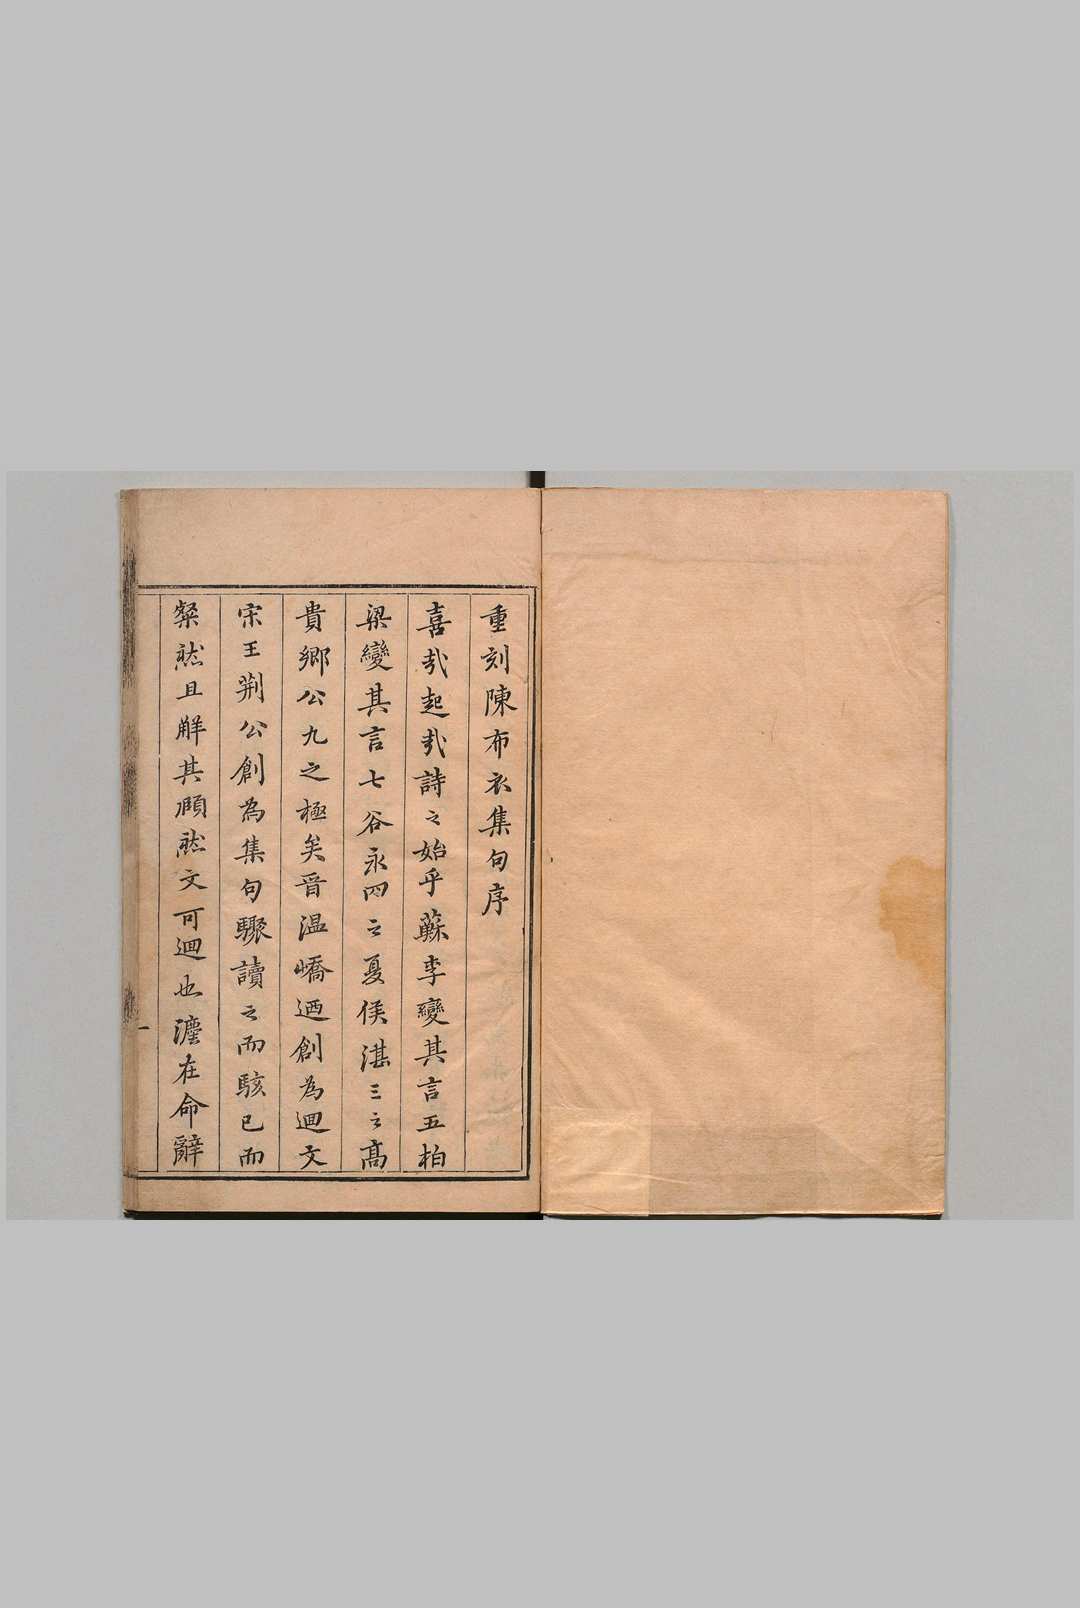 重刻陳布衣集句序
喜哉起哉詩之始乎蘇李變其言五柏
梁變其言七谷永四之夏侯湛三之高
貴鄉公九之極矣晉温嶠迺創為迴文
宋王荆公創為集句驟讀之而駭已而
粲然且解其頤然文可迴也瀍在命辭
一